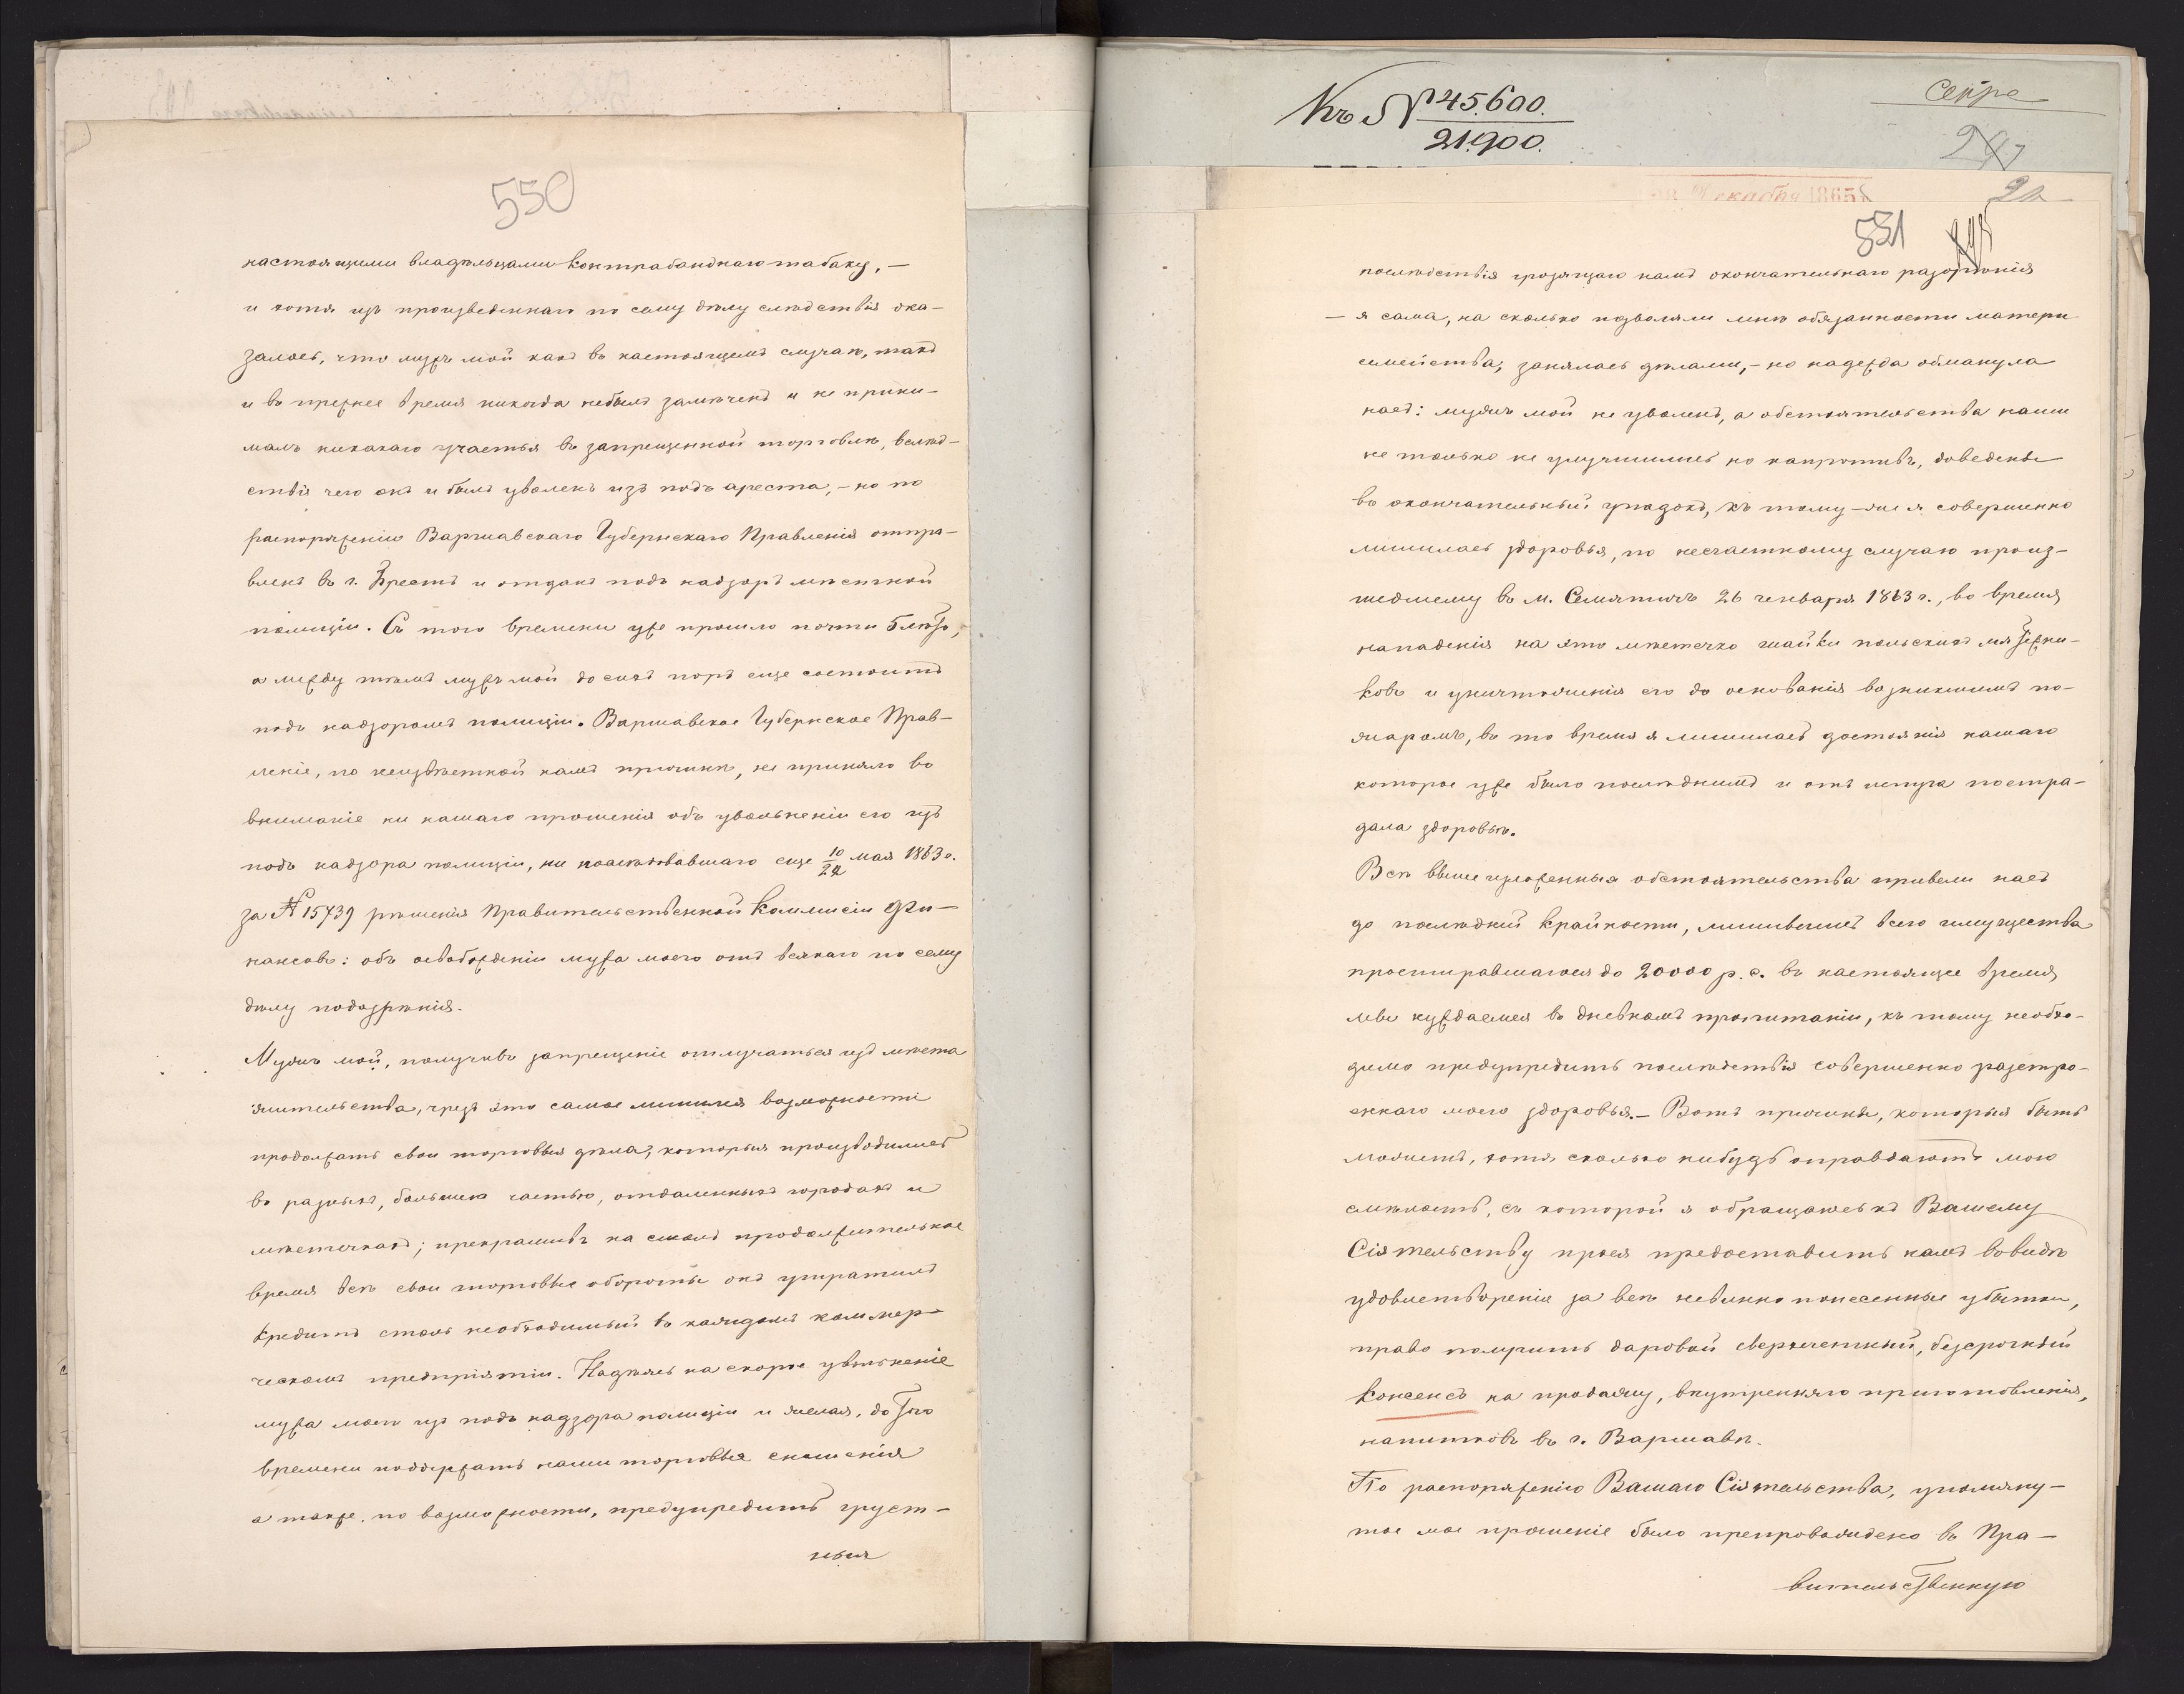 550
настоящими владѣльцами контрабанднаго табаку, —
и хотя изъ произведеннаго по сему дѣлу слѣдствія ока-
залось, что мужъ мой какъ въ настоящемъ случаѣ, такъ
и въ прежнее время никогда небылъ замѣченъ и не прини-
малъ никакаго участья въ запрещенной торговлѣ, вслѣд-
ствія чего онъ и былъ уволенъ изъ подъ ареста, – но по
распоряженію Варшавскаго Губернскаго Правленія отпра-
вленъ въ г. Брестъ и отданъ подъ надзоръ мѣстной
полиціи. Съ того времени уже прошло почти 5 лѣтъ,
а между тѣмъ мужъ мой до сихъ поръ еще состоитъ
подъ надзоромъ полиціи. Варшавское Губернское Прав-
леніе, по неизвѣстной намъ причинѣ, не приняло во
вниманіе ни нашаго прошенія объ увольненіи его изъ
подъ надзора полиціи, ни послѣдовавшаго еще 10/22 мая 1863 г.
за № 15739 рѣшенія Правительственной Коммисіи Фи-
нансовъ: объ освобожденіи мужа моего отъ всякаго по сему
дѣлу подозрѣнія.
Мужъ мой, получивъ запрещеніе отлучаться изъ мѣста
жительства, чрезъ это самое лишился возможности
продолжать свои торговыя дѣла, которыя производились
въ разныхъ, большею частью, отдаленныхъ городахъ и
мѣстечкахъ; прекративъ на столь продолжительное
время всѣ свои торговые обороты онъ утратилъ
кредитъ столь необходимый въ каждомъ коммер-
ческомъ предпріятіи. Надѣясь на скорое увольненіе
мужа моего изъ подъ надзора полиціи и желая, до того
времени поддержать наши торговыя сношенія
а также, по возможности, предупредить груст-
ныя
Къ № 45.600.
21.900.
Секре
Декабря 1865
551
послѣдствія грозящаго намъ окончательнаго разорѣнія
— я сама, на сколько позволяли мнѣ обязанности матери
семейства, занялась дѣлами, – но надежда обманула
насъ: мужъ мой не уволенъ, а обстоятельства наши
не только не улучшились но напротивъ, доведены
въ окончательный упадокъ, къ тому – же я совершенно
лишилась здоровья, по несчастному случаю произ-
шедшему въ м. Семятичъ 26 генваря 1863 г., во время
нападенія на это мѣстечко шайки польскихъ мятежни-
ковъ и уничтоженія его до основанія возникшимъ по-
жаромъ, въ то время я лишилась достоянія нашаго
которое уже было послѣднимъ и отъ испуга постра-
дала здоровьѣ.
Всѣ вышеизложенныя обстоятельства привели насъ
до послѣдней крайности, лишившись всего имущества
простиравшагося до 20000 р. с. въ настоящее время
мы нуждаемся въ дневномъ пропитаніи, къ тому необхо-
димо предупредить послѣдствія совершенно разстро-
еннаго моего здоровья. – Вотъ причины, которыя быть
можетъ, хотя сколько нибудь оправдаютъ мою
смѣлость, съ которой я обращаюсь къ Вашему
Сіятельству прося предоставить намъ ввидѣ
удовлетворенія за всѣ невинно понесенные убытки,
право получить даровой сверхчетный, безсрочный
консенсъ на продажу, внутренняго приготовленія,
напитковъ въ г. Варшавѣ.
По распоряженію Вашаго Сіятельства, упомяну-
тое мое прошеніе было препровождено въ Пра-
вительственную